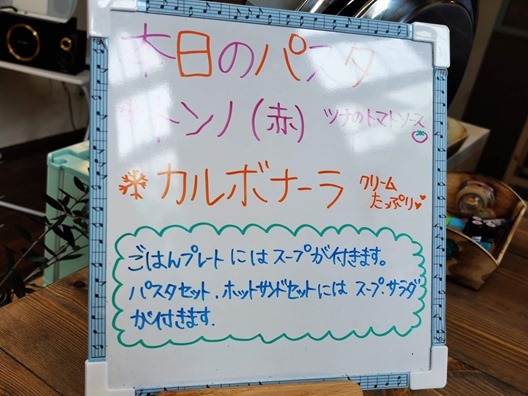 本日のパスタ
トンノ(赤) ツナのトマトソース
カルボナーラ クリーム
たっぷり
ごはんプレートにはスープが付きます。
パスタセット、ホットサンドセットには スープ・サラダ
が付きます.